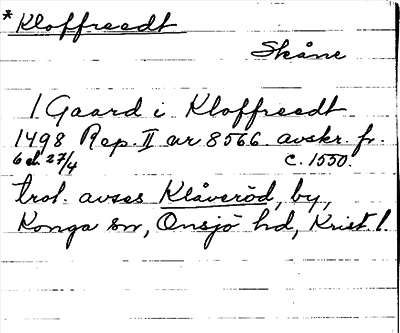 *Kloffreedt
Skåne
1 Gaard i Kloffreedt
1498 Rep. II nr 8566 avskr. fr.
6 el. 27/4 c. 1550.
trol. avses Klåveröd, by,
Konga sn, Onsjö hd, Krist. l.